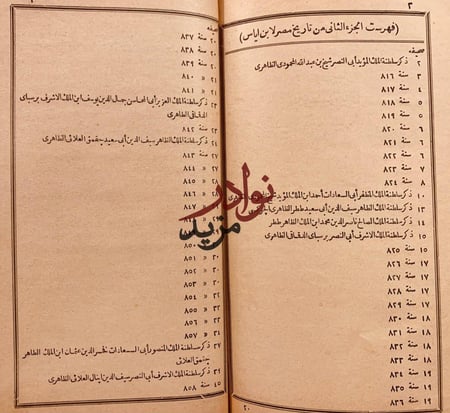 ٢
(فهرست الجزء الثانى من تاريخ مصر لابن اياس)
صحيفه
٢ ذكر سلطنة الملك المؤيد أبى النصر شيخ بن عبدالله المحمودى الظاهرى
٣ سنة ٨١٦
٤ سنة ٨١٧
٥ سنة ٨١٨
٥ سنة ٨١٩
٦ سنة ٨٢١
٦ سنة ٨٢٢
٧ سنة ٨٢٣
٨ سنة ٨٢٤
١٠ ذكر سلطنة الملك المظفر أبى السعادات أحمد ابن الملك المؤيد
١٣ ذكر سلطنة الملك الظاهر سيف الدين أبى سعيد ططر الظاهرى
١٤ ذكر سلطنة الملك الصالح ناصر الدين محمد ابن الملك الظاهر ططر
١٥ ذكر سلطنة الملك الاشرف أبى النصر برسباى الدقاقى الظاهرى
١٥ سنة ٨٢٥
١٥ سنة ٨٢٦
١٦ سنة ٨٢٧
١٧ سنة ٨٢٨
١٧ سنة ٨٢٩
١٧ سنة ٨٣٠
١٨ سنة ٨٣١
١٨ سنة ٨٣٢
١٨ سنة ٨٣٣
١٩ سنة ٨٣٤
١٩ سنة ٨٣٥
١٩ سنة ٨٣٦
صحيفه
٢٠ سنة ٨٣٧
٢٠ سنة ٨٣٨
٢٠ سنة ٨٣٩
٢١ « ٨٤٠
٢١ « ٨٤١
٢٣ ذكر سلطنة الملك العزيز أبى المحاسن جمال الدين يوسف ابن الملك الاشرف برسباى
الدقاقى الظاهرى
٢٣ سنة ٨٤٢
٢٤ ذكر سلطنة الملك الظاهر سيف الدين أبى سعيد جقمق العلائى الظاهرى
٢٧ سنة ٨٤٣
« ٨٤٤
« ٨٤٥
٨٤٦
٨٤٧
٨٥٠
٣٠ « ٨٥١
٣١ « ٨٥٢
« ٨٥٣
« ٨٥٤
« ٨٥٥
« ٨٥٦
٣٤ « ٨٥٧
٣٧ ذكر سلطنة الملك المنصور أبى السعادات فخر الدين عثمان ابن الملك الظاهر
جقمق العلائى
ذكر سلطنة الملك الاشرف أبى النصر سيف الدين اينال العلائى الظاهرى
٤٥ سنة ٨٥٨
نوادر
مزيد